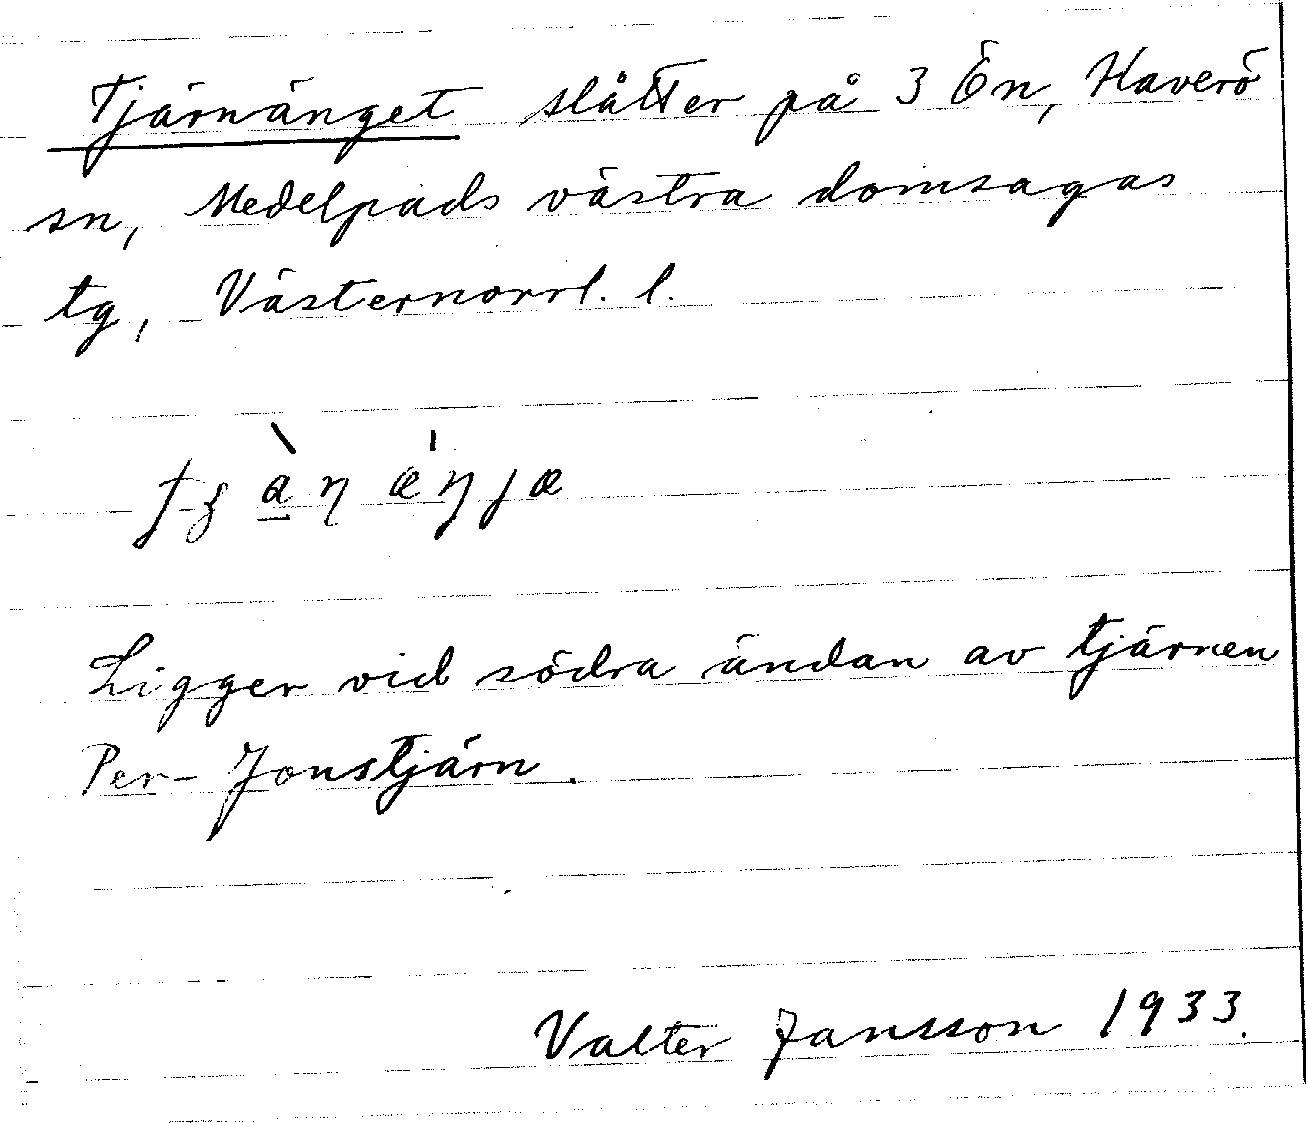 Tjärnänget slåtter på 3 Ön, Haverö
sn, Medelpads västra domsagas
tg, Västernorrl. l.
Ligger vid södra ändan av tjärnen
Per-Jonstjärn.
Valter Jansson 1933.